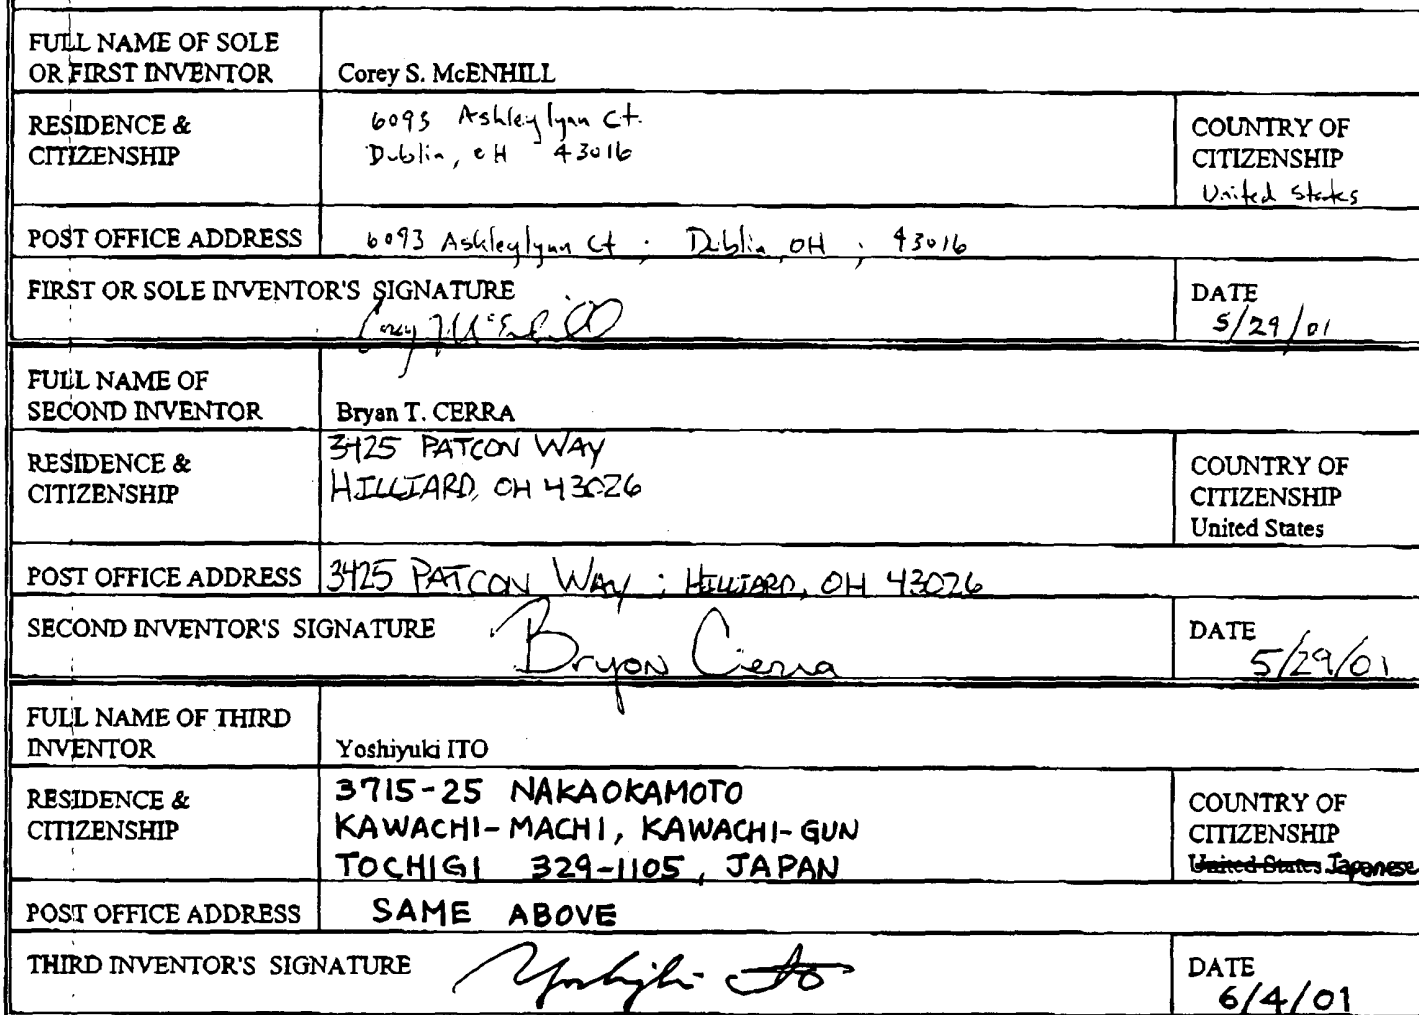 FULL NAME OF SOLE
OR FIRST INVENTOR
Corey S. McENHILL
RESIDENCE &
CITIZENSHIP
6093 Ashleylynn Ct.
Dublin, OH 43016
COUNTRY OF
CITIZENSHIP
United States
POST OFFICE ADDRESS
6093 Ashleylynn Ct ; Dublin, OH ; 43016
FIRST OR SOLE INVENTOR'S SIGNATURE
DATE
5/29/01
FULL NAME OF
SECOND INVENTOR
Bryan T. CERRA
RESIDENCE &
CITIZENSHIP
3425 PATCON WAY
HILLIARD, OH 43026
COUNTRY OF
CITIZENSHIP
United States
POST OFFICE ADDRESS
3425 PATCON WAY ; HILLIARD, OH 43026
SECOND INVENTOR'S SIGNATURE
Bryon Cerra
DATE
5/29/01
FULL NAME OF THIRD
INVENTOR
Yoshiyuki ITO
RESIDENCE &
CITIZENSHIP
3715-25 NAKAOKAMOTO
KAWACHI-MACHI, KAWACHI-GUN
TOCHIGI 329-1105, JAPAN
COUNTRY OF
CITIZENSHIP
United States Japanese
POST OFFICE ADDRESS
SAME ABOVE
THIRD INVENTOR'S SIGNATURE
DATE
6/4/01